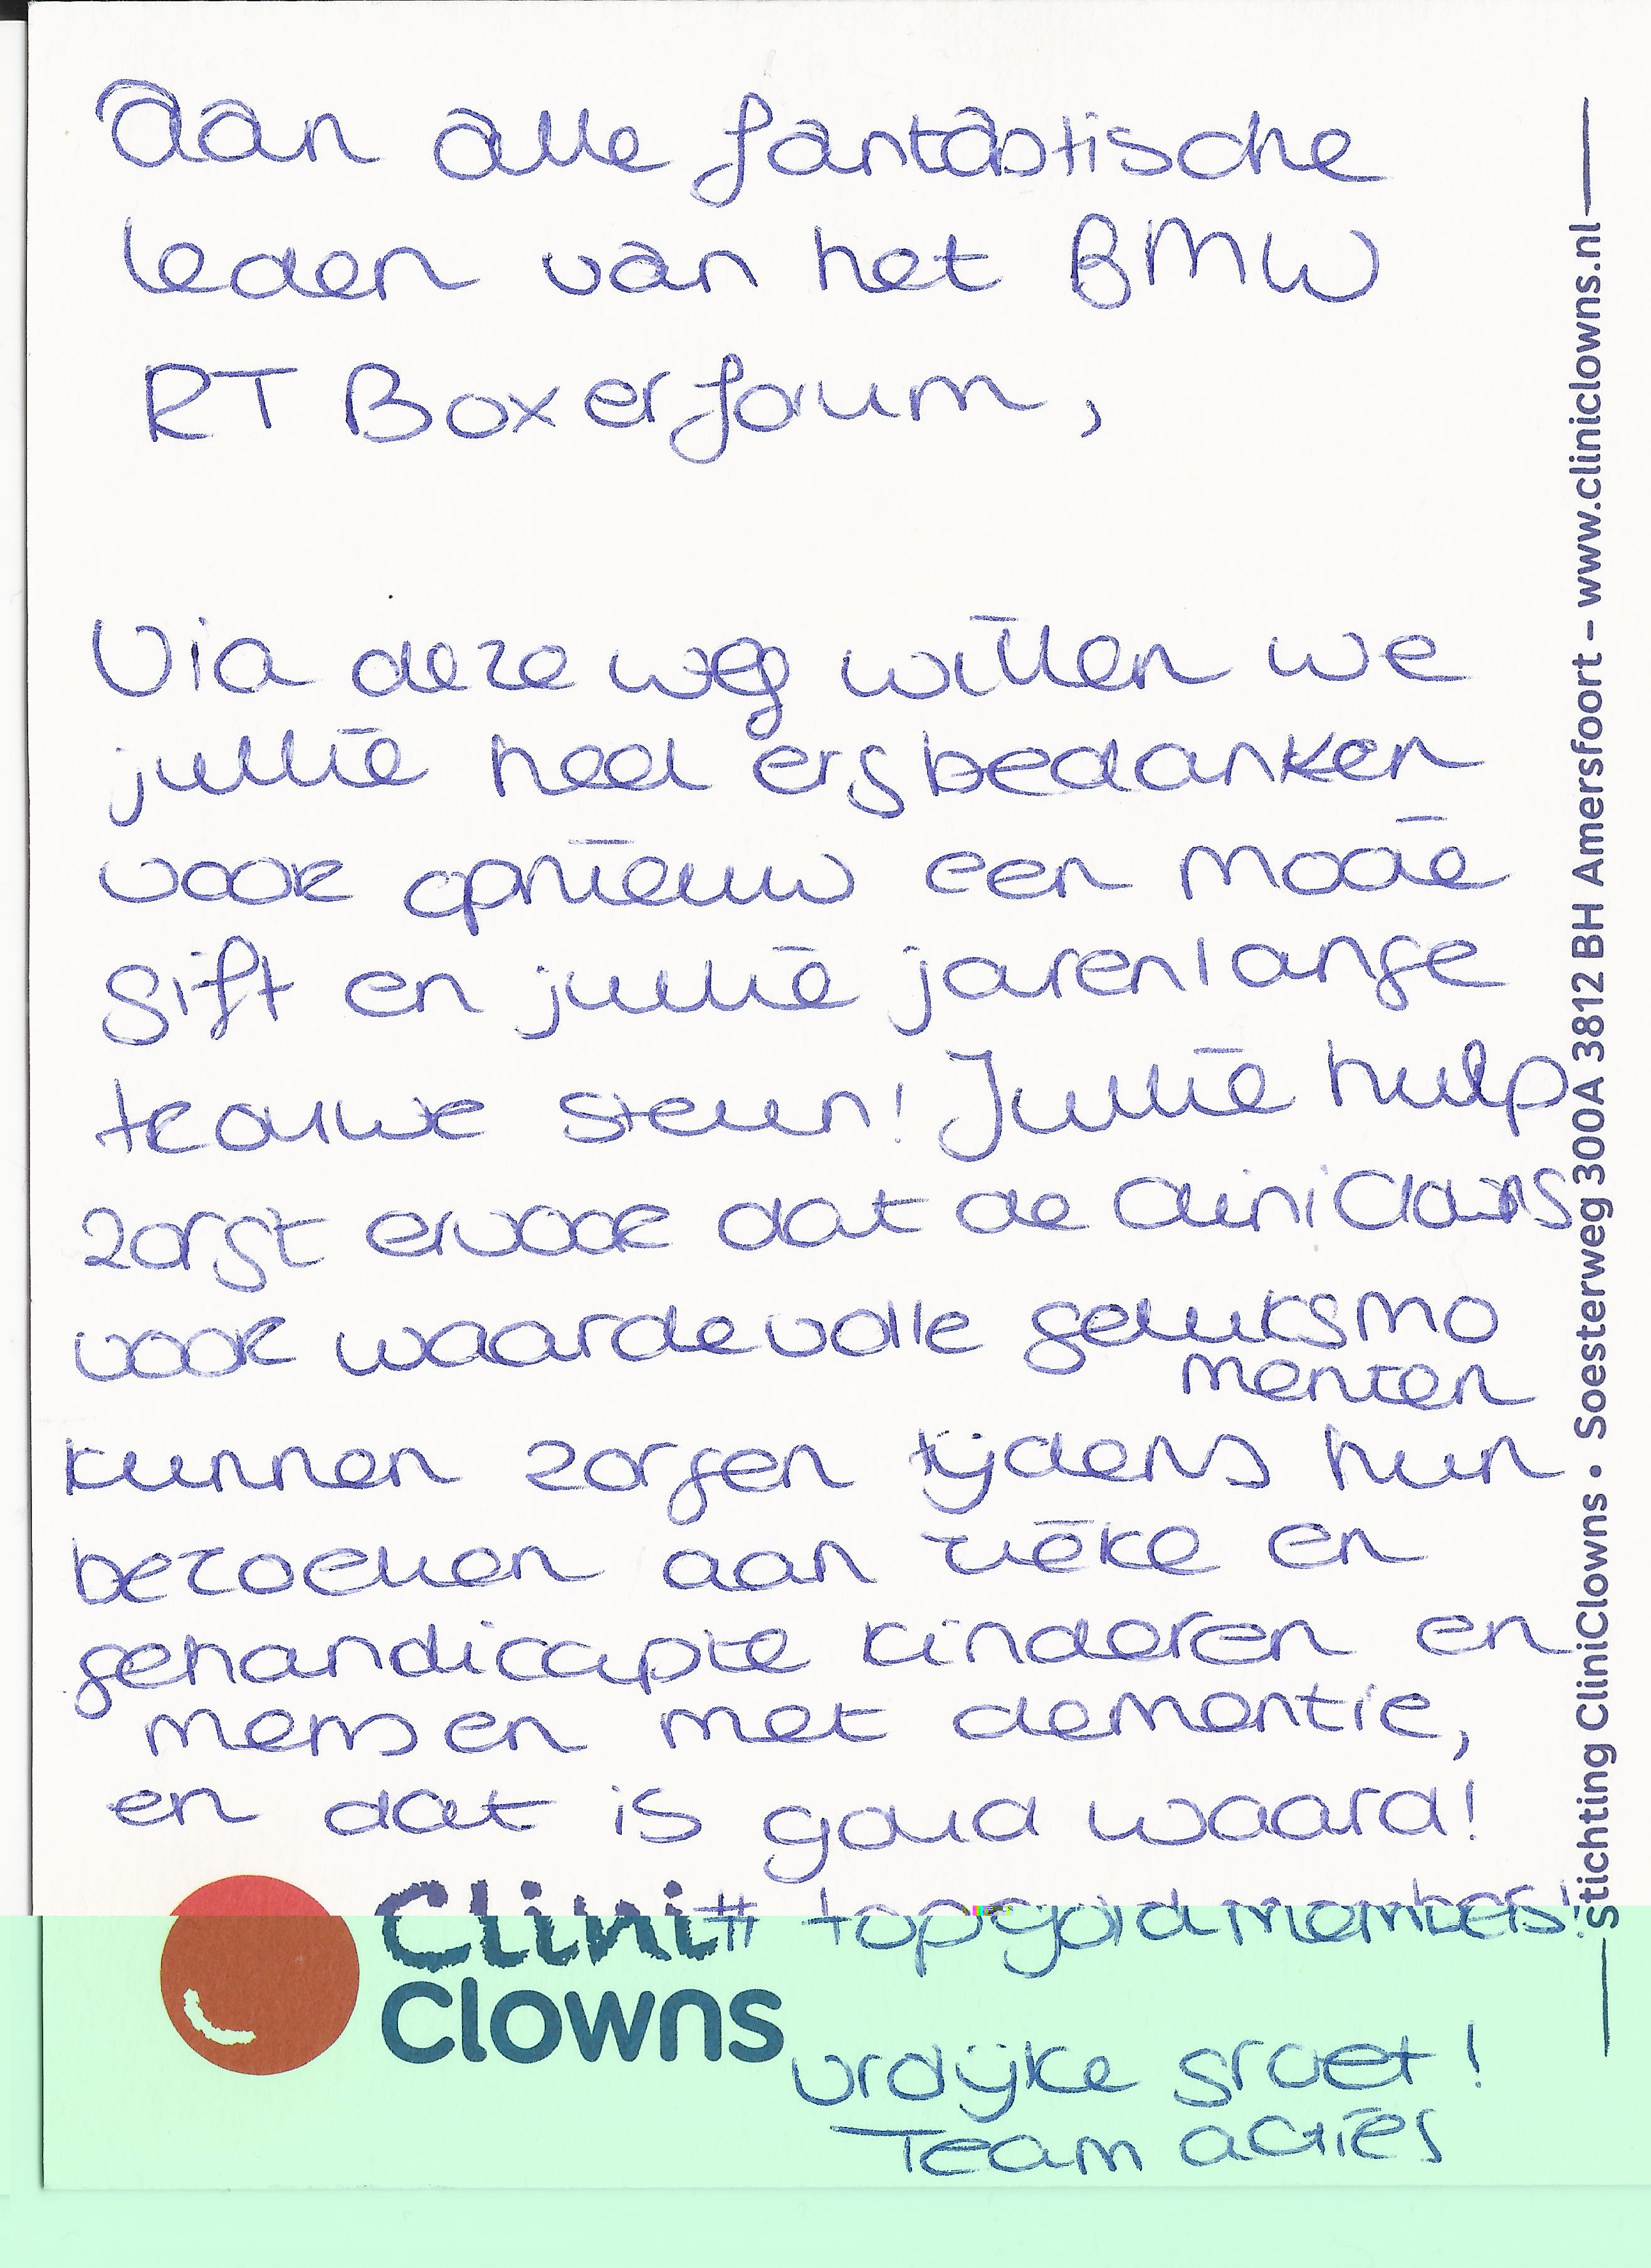 Aan alle fantastische
leden van het BMW
RT Boxerforum,
Via deze weg willen we
jullie heel erg bedanken
voor opnieuw een mooie
gift en jullie jarenlange
trouwe steun! Jullie hulp
zorgt ervoor dat de CliniClowns
voor waardevolle geluksmo
menten
kunnen zorgen tijdens hun
bezoeken aan zieke en
gehandicapte kinderen en
mensen met dementie,
en dat is goud waard!
# topgoldmembers!
Clini
Clowns
vrolijke groet!
Team acties
Stichting CliniClowns • Soesterweg 300A 3812 BH Amersfoort – www.cliniclowns.nl